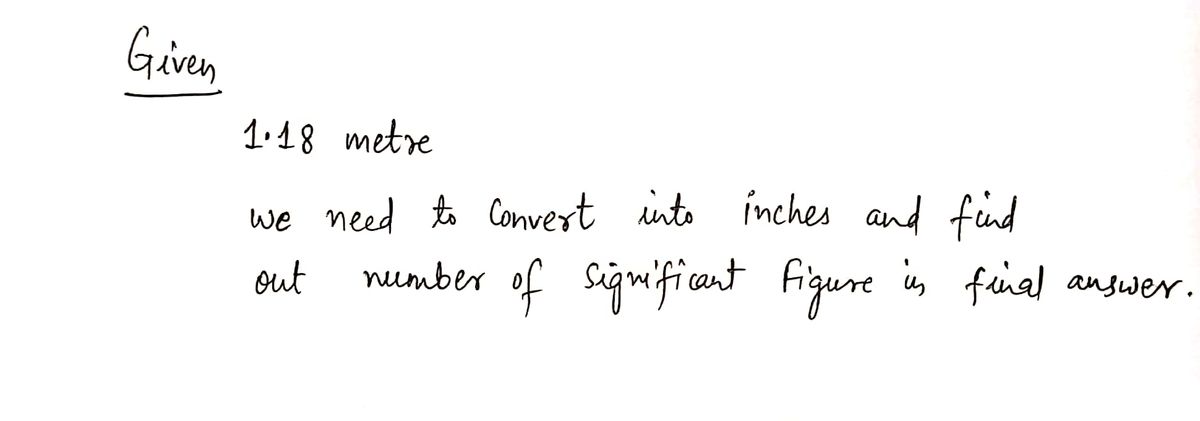 Given
1.18 metre
we need to convert into inches and find
out number of significant figure in final answer.